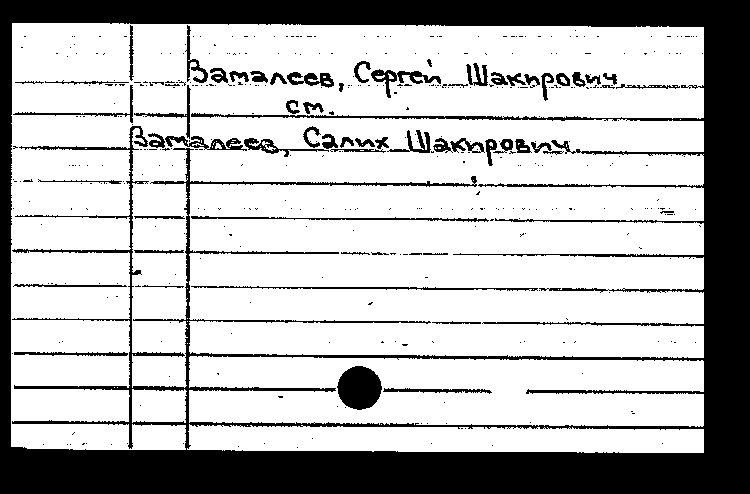 Замалеев, Сергей Шакирович.
см.
Замалеев, Салих Шакирович.